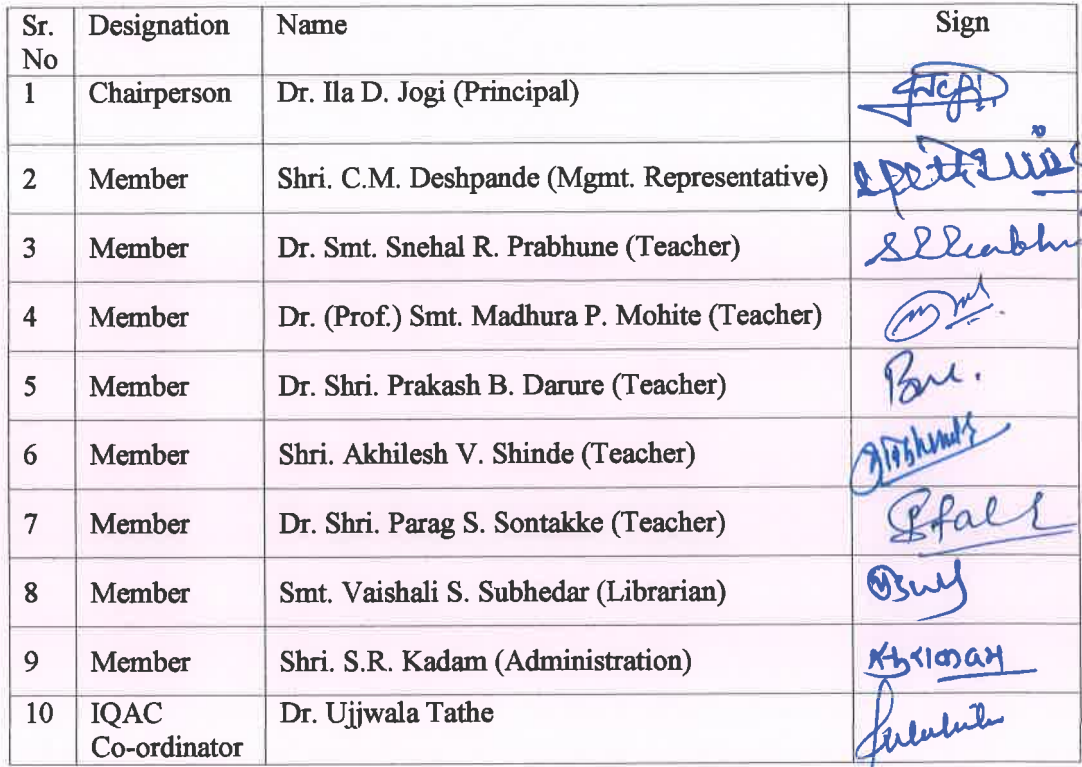 Sr. No Designation Name Sign
1 Chairperson Dr. Ila D. Jogi (Principal)
2 Member Shri. C.M. Deshpande (Mgmt. Representative)
3 Member Dr. Smt. Snehal R. Prabhune (Teacher)
4 Member Dr. (Prof.) Smt. Madhura P. Mohite (Teacher)
5 Member Dr. Shri. Prakash B. Darure (Teacher)
6 Member Shri. Akhilesh V. Shinde (Teacher)
7 Member Dr. Shri. Parag S. Sontakke (Teacher)
8 Member Smt. Vaishali S. Subhedar (Librarian)
9 Member Shri. S.R. Kadam (Administration)
10 IQAC Co-ordinator Dr. Ujjwala Tathe